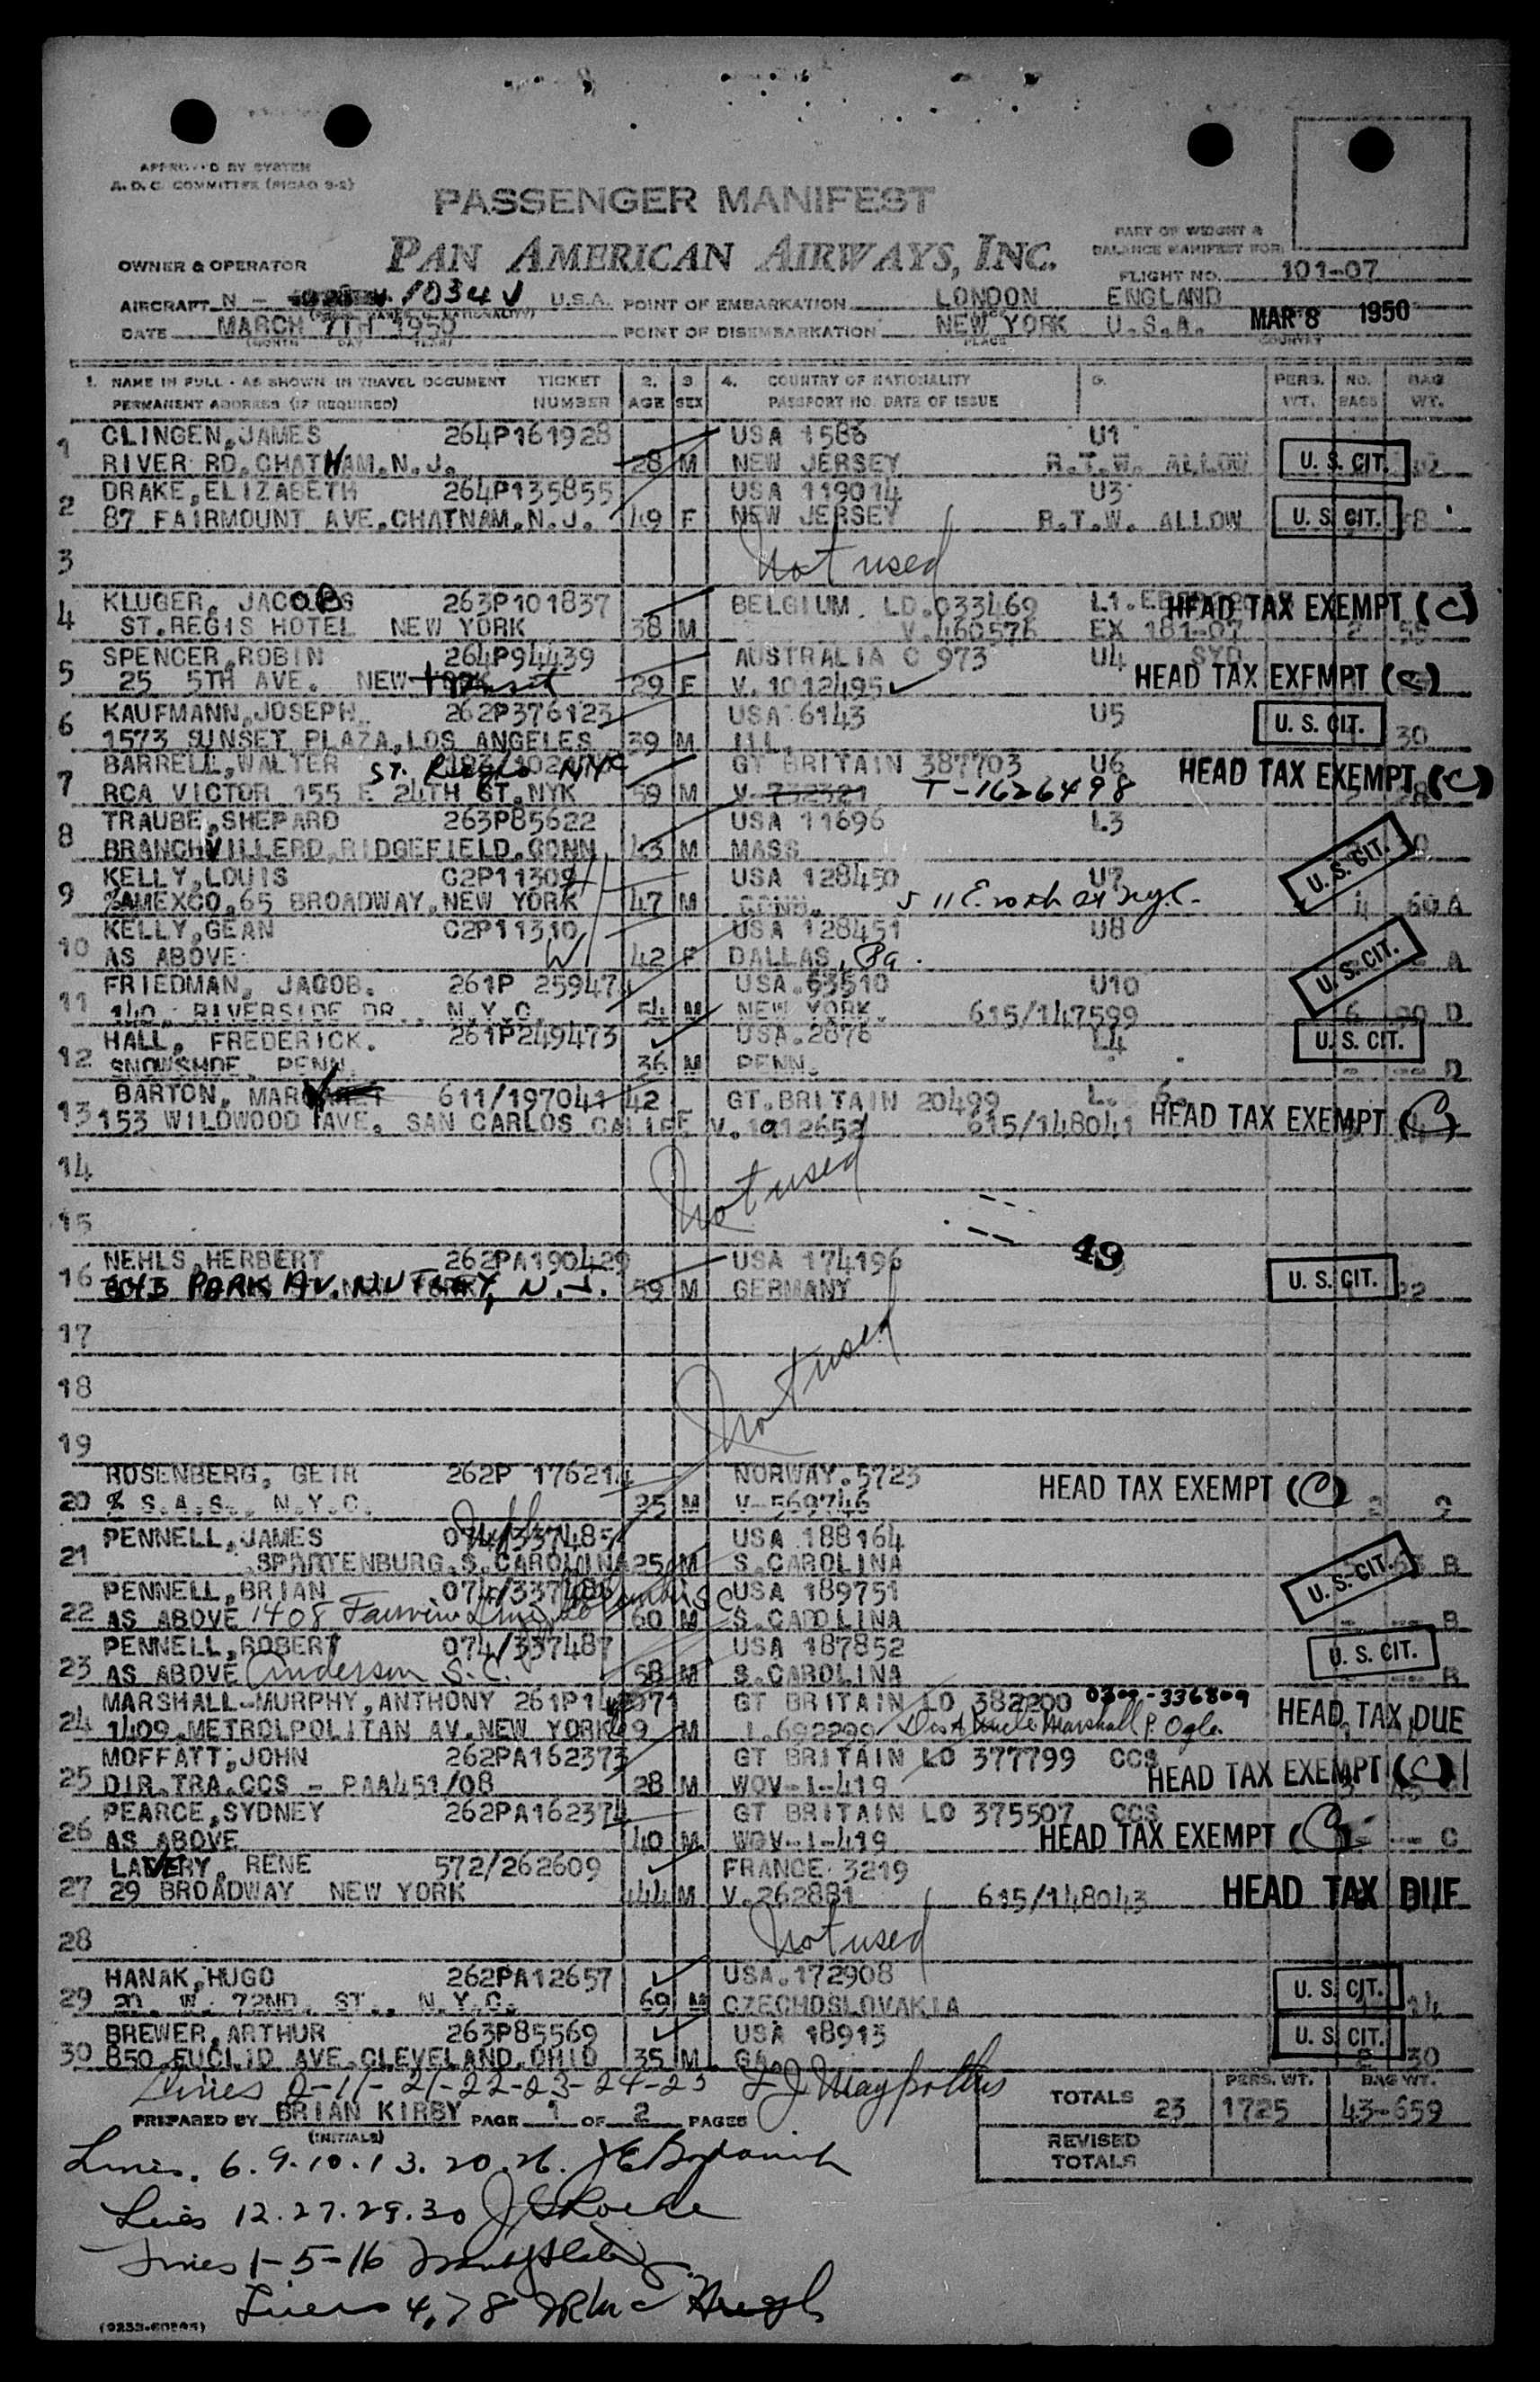 APPROVED BY SYSTEM
A.D.C. COMMITTEE (PICAO 9-2)
PASSENGER MANIFEST
PAN AMERICAN AIRWAYS, INC.
PART OF WEIGHT &
BALANCE MANIFEST FOR:
OWNER & OPERATOR
FLIGHT NO. 101-07
AIRCRAFT N - 1034V U.S.A. POINT OF EMBARKATION LONDON ENGLAND
DATE MARCH 7TH 1950 POINT OF DISEMBARKATION NEW YORK U.S.A. MAR 8 1950
(MONTH DAY YEAR) PLACE COUNTRY
1. NAME IN FULL - AS SHOWN IN TRAVEL DOCUMENT TICKET 2. 3. 4. COUNTRY OF NATIONALITY 5. PERS. NO. BAG
PERMANENT ADDRESS (IF REQUIRED) NUMBER AGE SEX PASSPORT NO. DATE OF ISSUE WT. BAGS WT.
1 CLINGEN, JAMES 264P161928 USA 1586 U1
RIVER RD. CHATHAM. N.J. 28 M NEW JERSEY R.T.W. ALLOW U. S. CIT.
2 DRAKE, ELIZABETH 264P135855 USA 119014 U3
87 FAIRMOUNT AVE. CHATNAM. N.J. 49 F NEW JERSEY R.T.W. ALLOW U. S. CIT.
3 Not used
4 KLUGER, JACOB 263P101837 BELGIUM LD.033469 L1. HEAD TAX EXEMPT (C)
ST.REGIS HOTEL NEW YORK 38 M V.460576 EX 181-07 2 55
5 SPENCER, ROBIN 264P94439 AUSTRALIA C 973 U4 SYD
25 5TH AVE. NEW YORK 29 F V.1012495 HEAD TAX EXEMPT (C)
6 KAUFMANN, JOSEPH. 262P376123 USA 6143 U5 U. S. CIT.
1573 SUNSET PLAZA, LOS ANGELES 39 M ILL. 30
7 BARRELL, WALTER ST. Regis NYC GT BRITAIN 387703 U6 HEAD TAX EXEMPT (C)
RCA VICTOR 155 E 24TH ST. NYK 59 M V-732321 T-1626498
8 TRAUBE, SHEPARD 263P85622 USA 11696 L3
BRANCHVILLERD. RIDGEFIELD. CONN 43 M MASS U. S. CIT.
9 KELLY, LOUIS C2P11309 USA 128450 U7
%AMEXCO, 65 BROADWAY, NEW YORK 47 M CONN. 4 60 A
10 KELLY, GEAN C2P11310 USA 128451 U8
AS ABOVE 42 F DALLAS, Pa. U. S. CIT. A
11 FRIEDMAN, JACOB. 261P 259474 USA.53510 U10
140, RIVERSIDE DR., N.Y.C. 54 M NEW YORK. 615/147599 6 D
12 HALL, FREDERICK. 261P249473 USA.2876 L4 U. S. CIT.
SNOWSHOE, PENN. 36 M PENN. D
13 BARTON, MAR 611/197041 42 GT.BRITAIN 20499 L. 6.
153 WILDWOOD AVE. SAN CARLOS CALIF. F V.1912652 615/148041 HEAD TAX EXEMPT (C)
14
Not used
15
16 NEHLS, HERBERT 262PA190429 USA 174196 49
PARK AV. NUTLEY, N.J. 59 M GERMANY U. S. CIT. 22
17
18 Not used
19
20 ROSENBERG, GEIR 262P 176214 NORWAY.5723 HEAD TAX EXEMPT (C)
% S.A.S., N.Y.C. 25 M V-569746 2 9
21 PENNELL, JAMES 074/337485 USA 188164
SPARTENBURG, S. CAROLINA 25 M S.CAROLINA U. S. CIT. B
22 PENNELL, BRIAN USA 189751
AS ABOVE 1408 Fairview Columbia S.C. 60 M S.CAROLINA B
23 PENNELL, ROBERT 074/337487 USA 187852 U. S. CIT.
AS ABOVE Anderson S.C. 58 M S.CAROLINA B
24 MARSHALL-MURPHY, ANTHONY GT BRITAIN LO 382200 0300-336809
1409. METROLPOLITAN AV. NEW YORK 49 M I.692299 Marshall P. Ogle. HEAD TAX DUE
25 MOFFATT, JOHN 262PA162373 GT BRITAIN LO 377799 CCS
DIR. TRA. CCS - PAA451/08 28 M WOV-1-419 HEAD TAX EXEMPT (C)
26 PEARCE, SYDNEY 262PA162374 GT BRITAIN LO 375507 CCS
AS ABOVE 40 M WOV-1-419 HEAD TAX EXEMPT (C) C
27 LAVERY, RENE 572/262609 FRANCE 3219
29 BROADWAY NEW YORK 44 M V.262881 615/148043 HEAD TAX DUE
28 Not used
29 HANAK, HUGO 262PA12657 USA.172908 U. S. CIT.
20. W. 72ND. ST., N.Y.C. 69 M CZECHOSLOVAKIA 14
30 BREWER, ARTHUR 263P85569 USA 18913 U. S. CIT.
850 EUCLID AVE. CLEVELAND. OHIO 35 M GA. 2 30
Lines 2-11-21-22-23-24-25
PREPARED BY BRIAN KIRBY PAGE 1 OF 2 PAGES
(INITIALS)
PERS. WT. BAG WT.
TOTALS 23 1725 43-659
REVISED
TOTALS
Lines. 6.9.10.13.20.26.
Lines 12.27.29.30
Lines 1-5-16
Lines 4,78